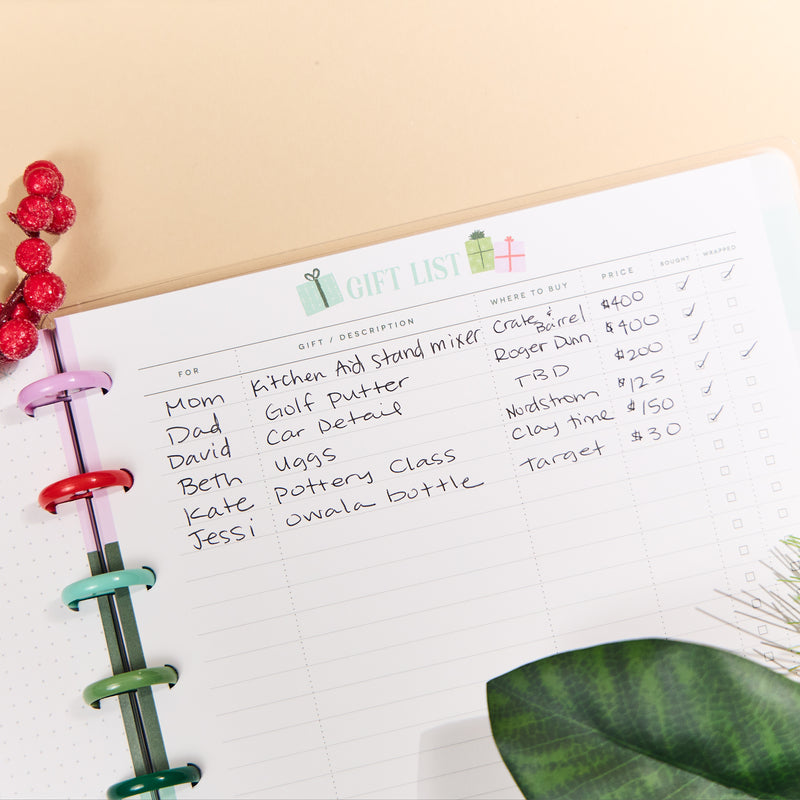 GIFT LIST
FOR GIFT / DESCRIPTION WHERE TO BUY PRICE BOUGHT WRAPPED
Mom Kitchen Aid stand mixer Crate & Barrel $400
Dad Golf Putter Roger Dunn $400
David Car Detail TBD $200
Beth Uggs Nordstrom $125
Kate Pottery Class Clay time $150
Jessi Owala bottle Target $30